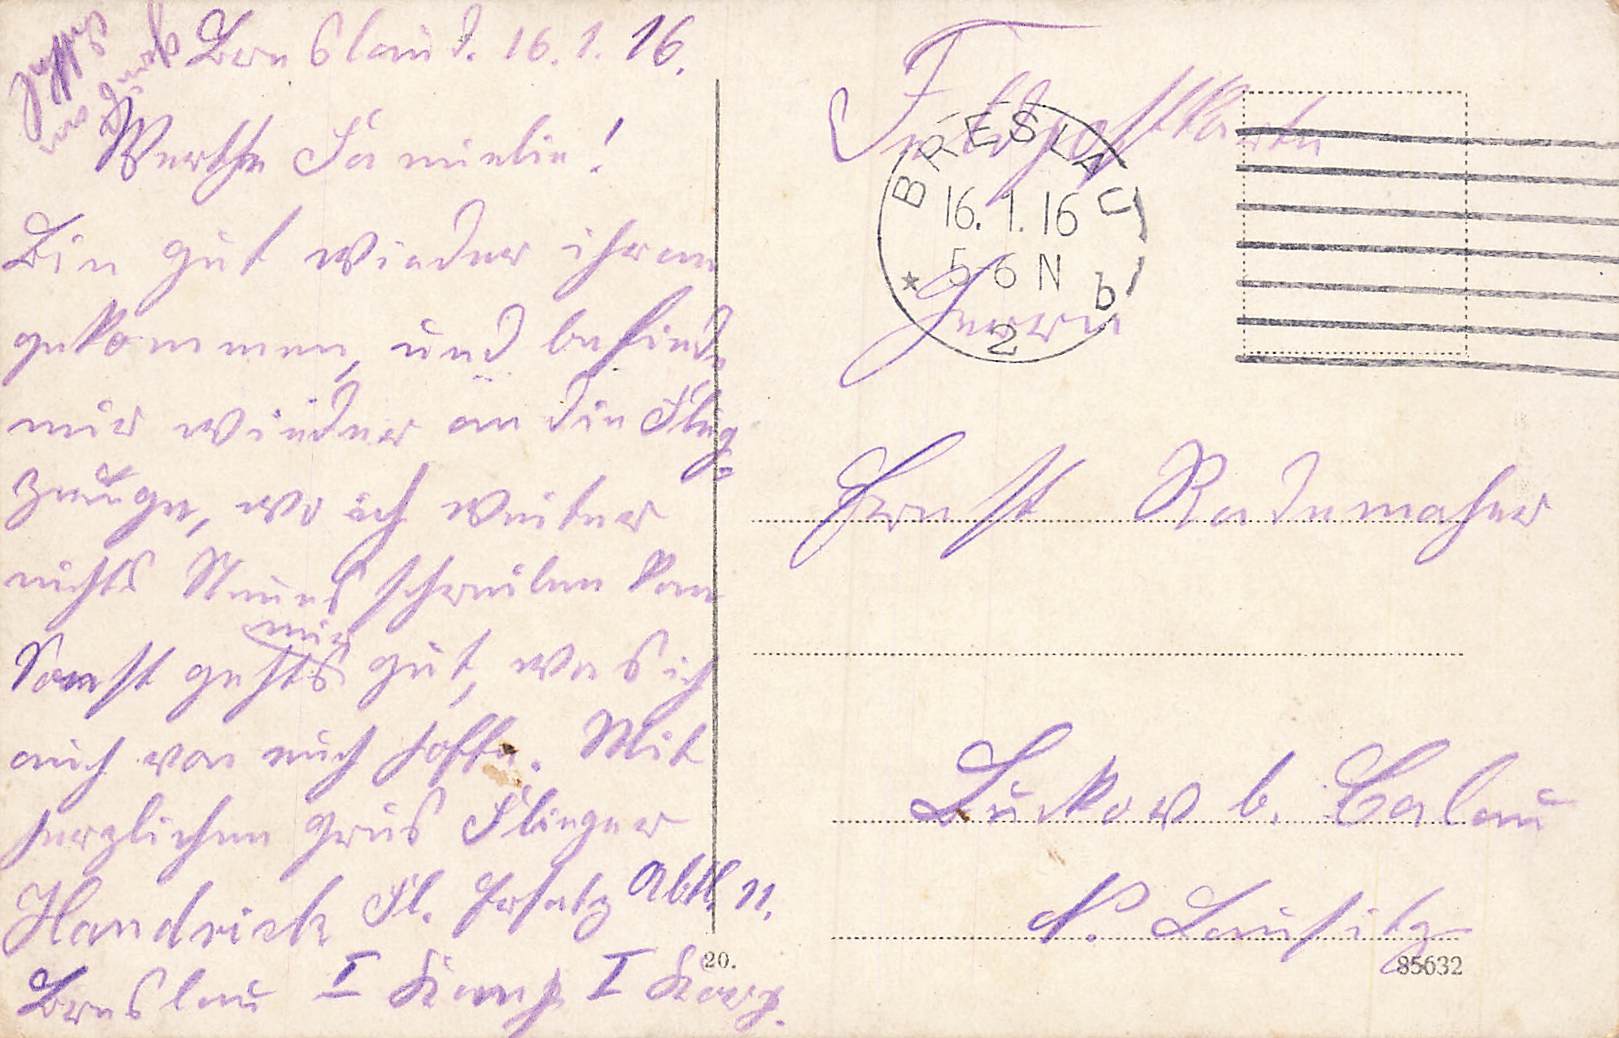 Breslau d. 16.1.16.
Werthe Familie!
Bin gut wieder ihram
gekommen, und befinde
mir wieder an die Flug-
zeuge, wo ich weiter
nichts Neues schreiben kan
Sonst gehts mir gut, was ich
auch von euch hoffe. Mit
herzlichen grus Flieger
Handrick Fl. Ersatz Abtl. 11.
Breslau I Komp I Korp.
20.
Feldpostkarte
BRESLAU
16.1.16
5-6 N
* 2 b
Herrn
Ernst Rademaher
Buckow b. Calau
N. Lausitz
85632